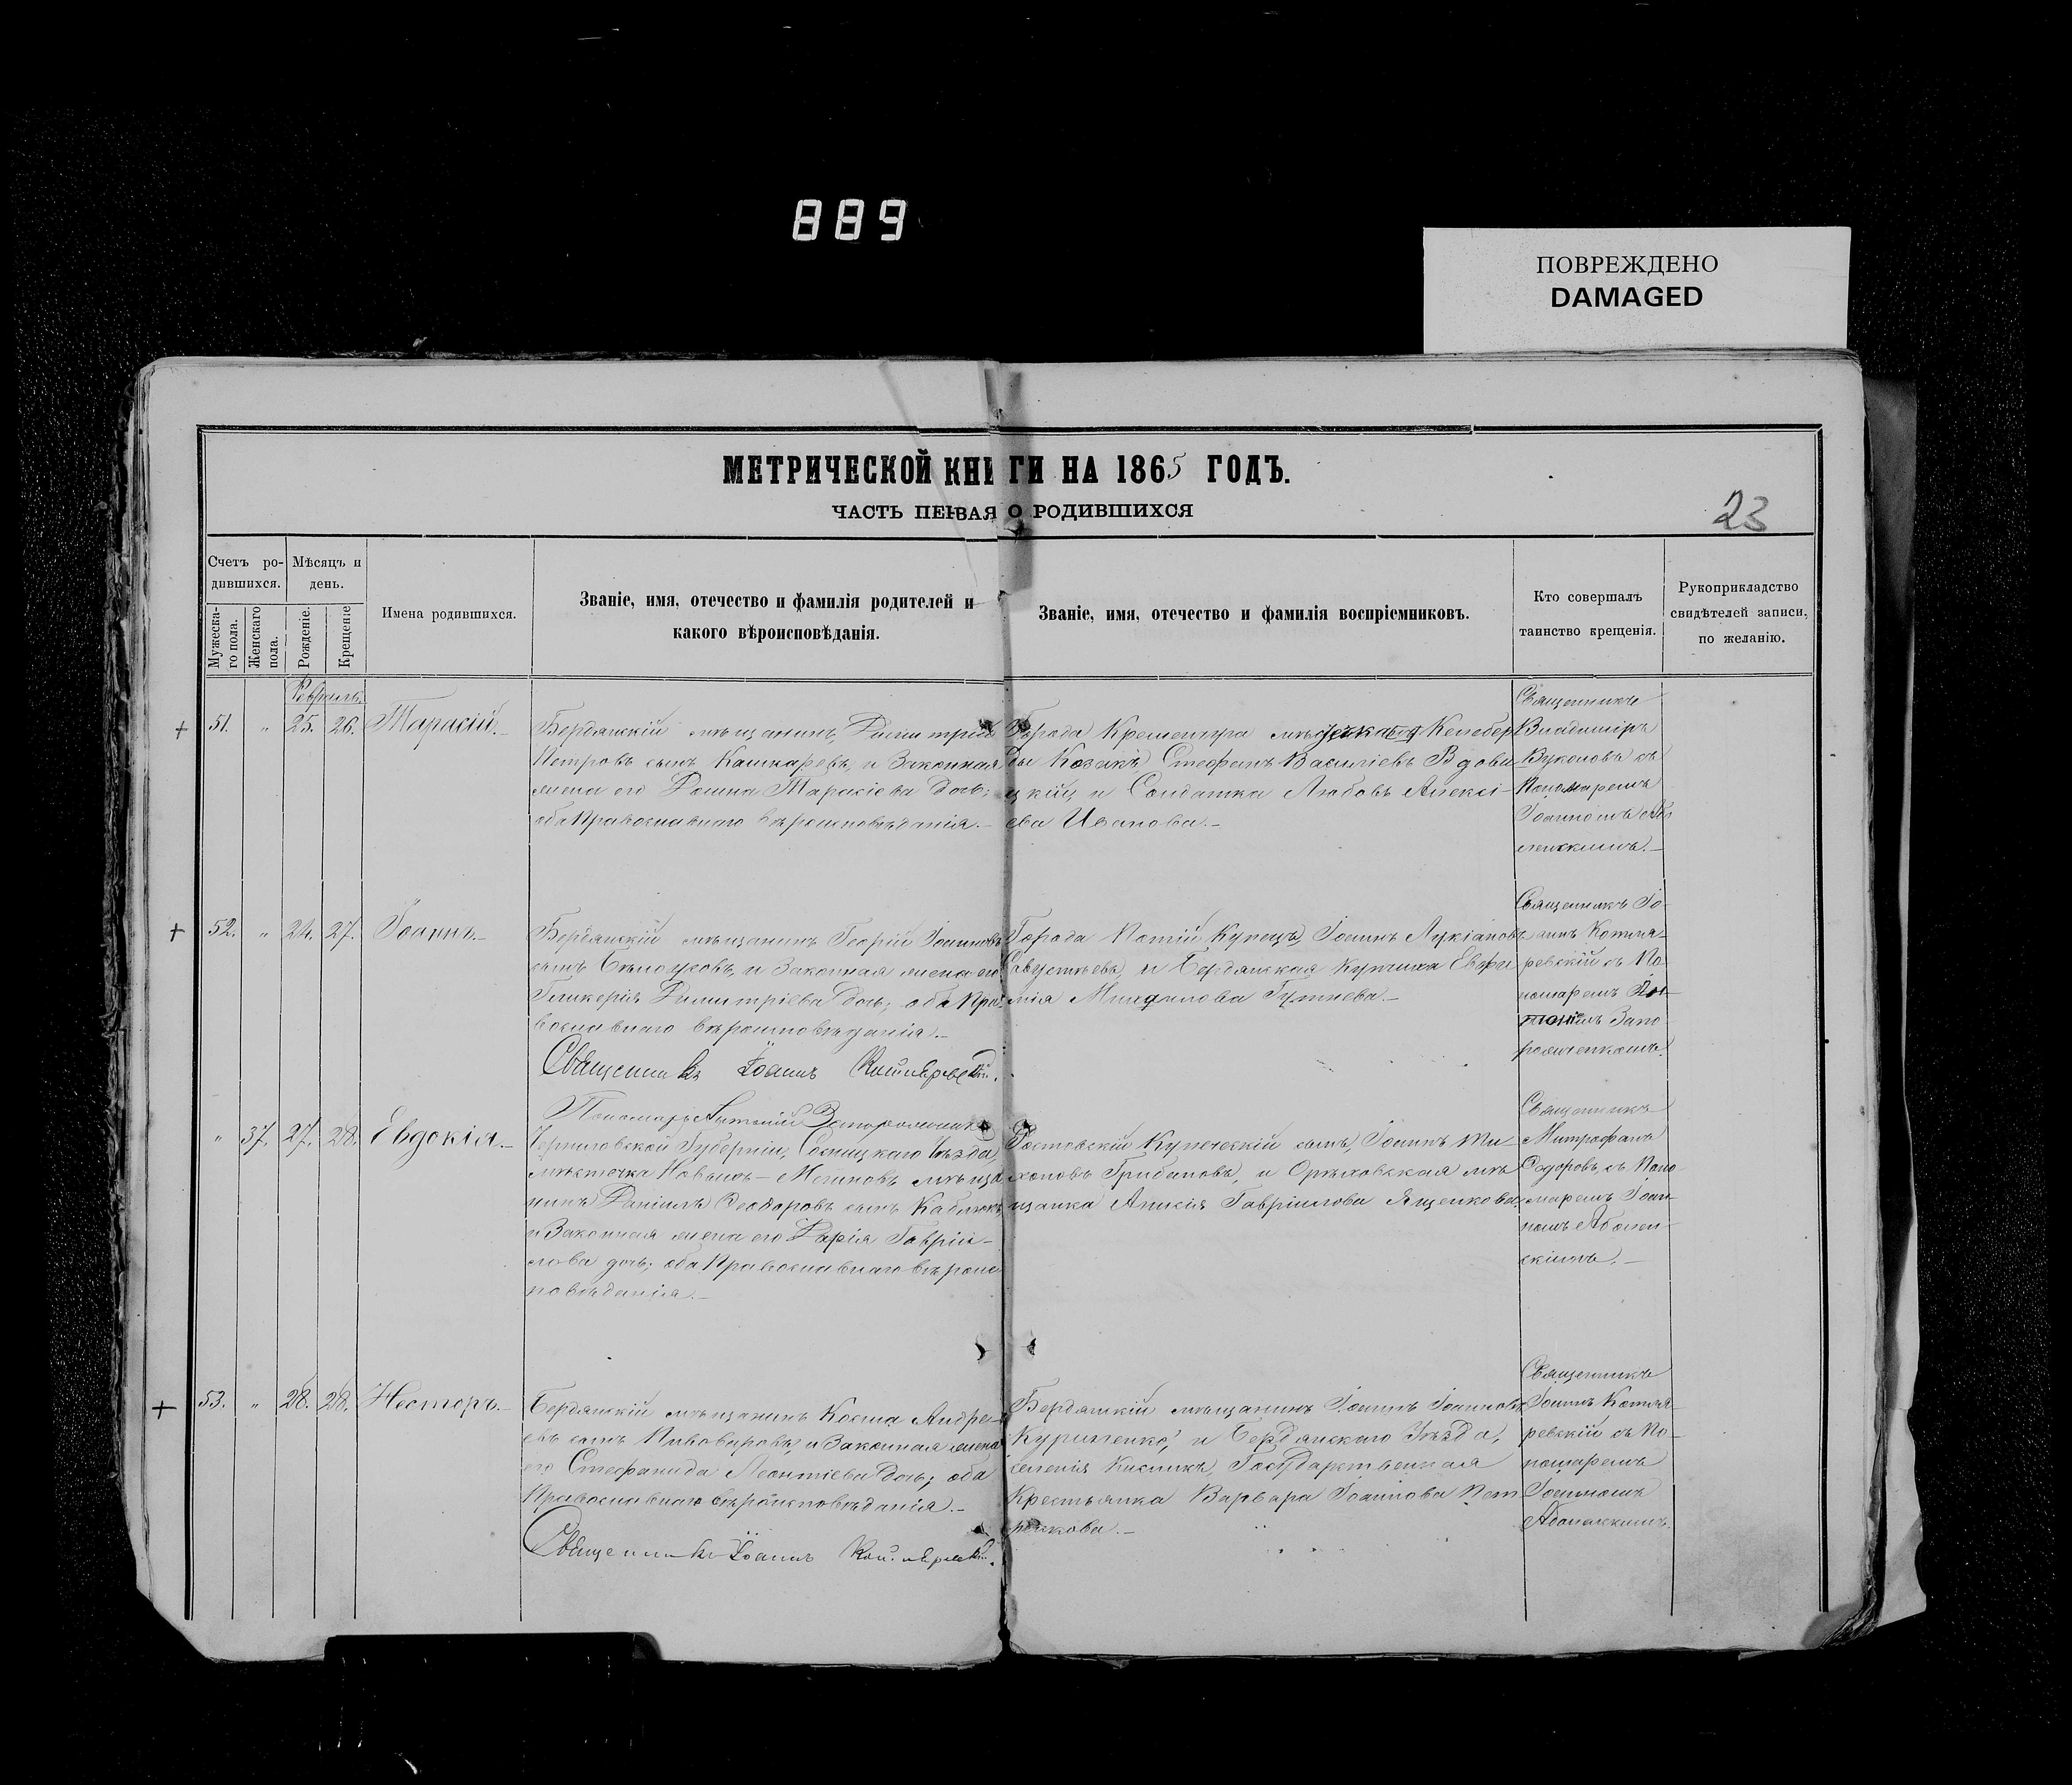 889
ПОВРЕЖДЕНО
DAMAGED
МЕТРИЧЕСКОЙ КНИГИ НА 1865 ГОДЪ.
ЧАСТЬ ПЕРВАЯ О РОДИВШИХСЯ
23
Счетъ ро-
дившихся.
Мужеска-
го пола.
Женскаго
пола.
Мѣсяцъ и
день.
Рожденіе.
Крещеніе
Имена родившихся.
Званіе, имя, отечество и фамилія родителей и
какого вѣроисповѣданія.
Званіе, имя, отечество и фамилія воспріемниковъ.
Кто совершалъ
таинство крещенія.
Рукоприкладство
свидѣтелей записи,
по желанію.
Февраль.
51. " 25. 26. Тарасій.-
Бердянскій мѣщанинъ, Димитрій
Петровъ сынъ Кашкаревъ, и Законная
жена его Домна Тарасіева дочь;
оба Православнаго вѣроисповѣданія.-
Города Кременчуга Келебер
ды Козакъ Стефанъ Василіевъ Вдови
цкій, и Солдатка Любовь Алексі-
ева Иванова.-
Священникъ
Владиміръ
Вуколовъ съ
Пономаремъ
Іоанномъ
52. " 24. 27. Іоаннъ.-
Бердянскій мѣщанинъ Георгій Іоанновъ
сынъ Бѣлоусовъ, и Законная жена его
Гликерія Димитріева дочь; оба Пра-
вославнаго вѣроисповѣданія.-
Священникъ Іоаннъ Котляревскій.
Города Купецъ, Іоаннъ Лукіановъ
и Бердянская Купчиха Евфи
мія
Священникъ Іо-
аннъ Котля-
ревскій съ По-
номаремъ Ан-
тоніемъ Запо-
рожченкомъ.
Пономарь Антоній Запорожченко
" 37. 27. 28. Евдокія.-
Черниговской Губерніи, Сосницкаго Уѣзда,
мѣстечка Новыхъ-Млиновъ мѣща
нинъ Даніилъ Ѳеодоровъ сынъ
и Законная жена его Дарія Гавріи-
лова дочь; оба Православнаго вѣроис
повѣданія.-
Ростовскій Купеческій сынъ, Іоаннъ Ти-
хоновъ Грибановъ, и Орѣховская мѣ
щанка Гавріилова Ященкова.
Священникъ
Митрофанъ
Ѳедоровъ, съ Поно-
маремъ Іоан-
номъ Аболен-
скимъ.-
53. " 28. 28. Несторъ.-
Бердянскій мѣщанинъ Косма Андре-
евъ сынъ Пивоваровъ, и Законная жена
его Стефанида Леонтіева дочь; оба
Православнаго вѣроисповѣданія.-
Священникъ Іоаннъ Котляревскій.
Бердянскій мѣщанинъ Іоаннъ Іоанновъ
Куриленко, и Бердянскаго Уѣзда,
селенія Государственная
Крестьянка Варвара Іоаннова Пет
Священникъ
Іоаннъ Котля-
ревскій съ По-
номаремъ
Іоанномъ
Аболенскимъ.